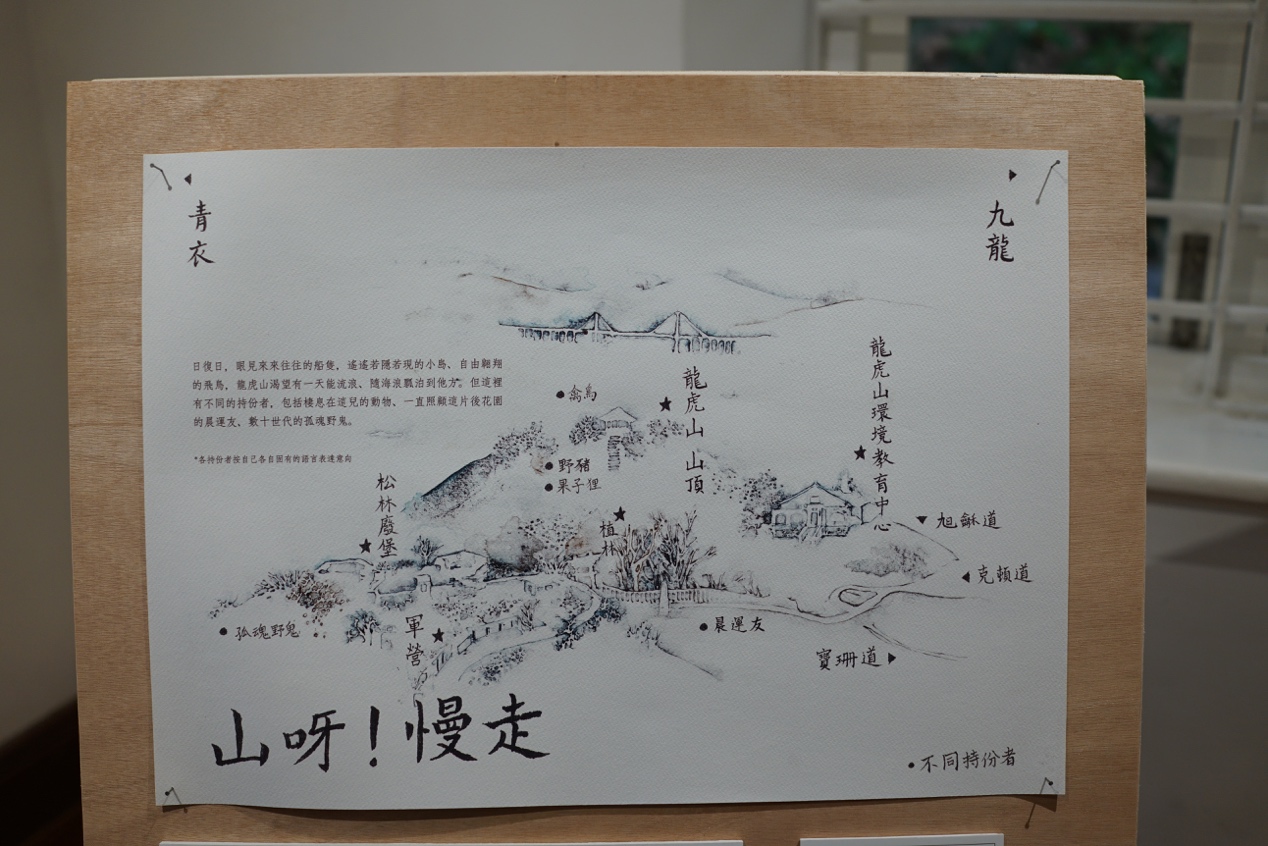 青衣
九龍
日復日，眼見來來往往的船隻，遙遙若隱若現的小島、自由翱翔
的飛鳥，龍虎山渴望有一天能流浪、隨海浪飄泊到他方。但這裡
有不同的持份者，包括棲息在這兒的動物、一直照顧這片後花園
的晨運友、數十世代的孤魂野鬼。
*各持份者按自己各自固有的語言表達意向
禽鳥
龍虎山山頂
龍虎山環境教育中心
野豬
果子狸
松林廢堡
植林
旭龢道
克頓道
孤魂野鬼
軍營
晨運友
寶珊道
山呀！慢走
不同持份者